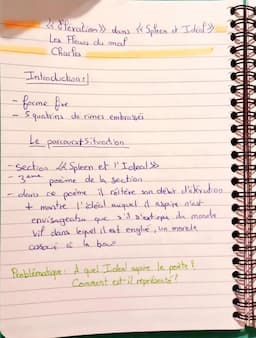 « Elévation » dans « Spleen et Idéal »
Les Fleurs du mal
Charles
Introduction :
- forme fixe
- 5 quatrains de rimes embrassées
Le parcours + Situation
- section « Spleen et l'Idéal »
- 3ème poème de la section
- dans ce poème il réitère son désir d'élévation
+ montre l'idéal auquel il aspire n'est
envisageable que s'il s'extirpe du monde
vil dans lequel il est englué, un monde
associé à la boue
Problématique : A quel Idéal aspire le poète ?
Comment est-il représenté ?